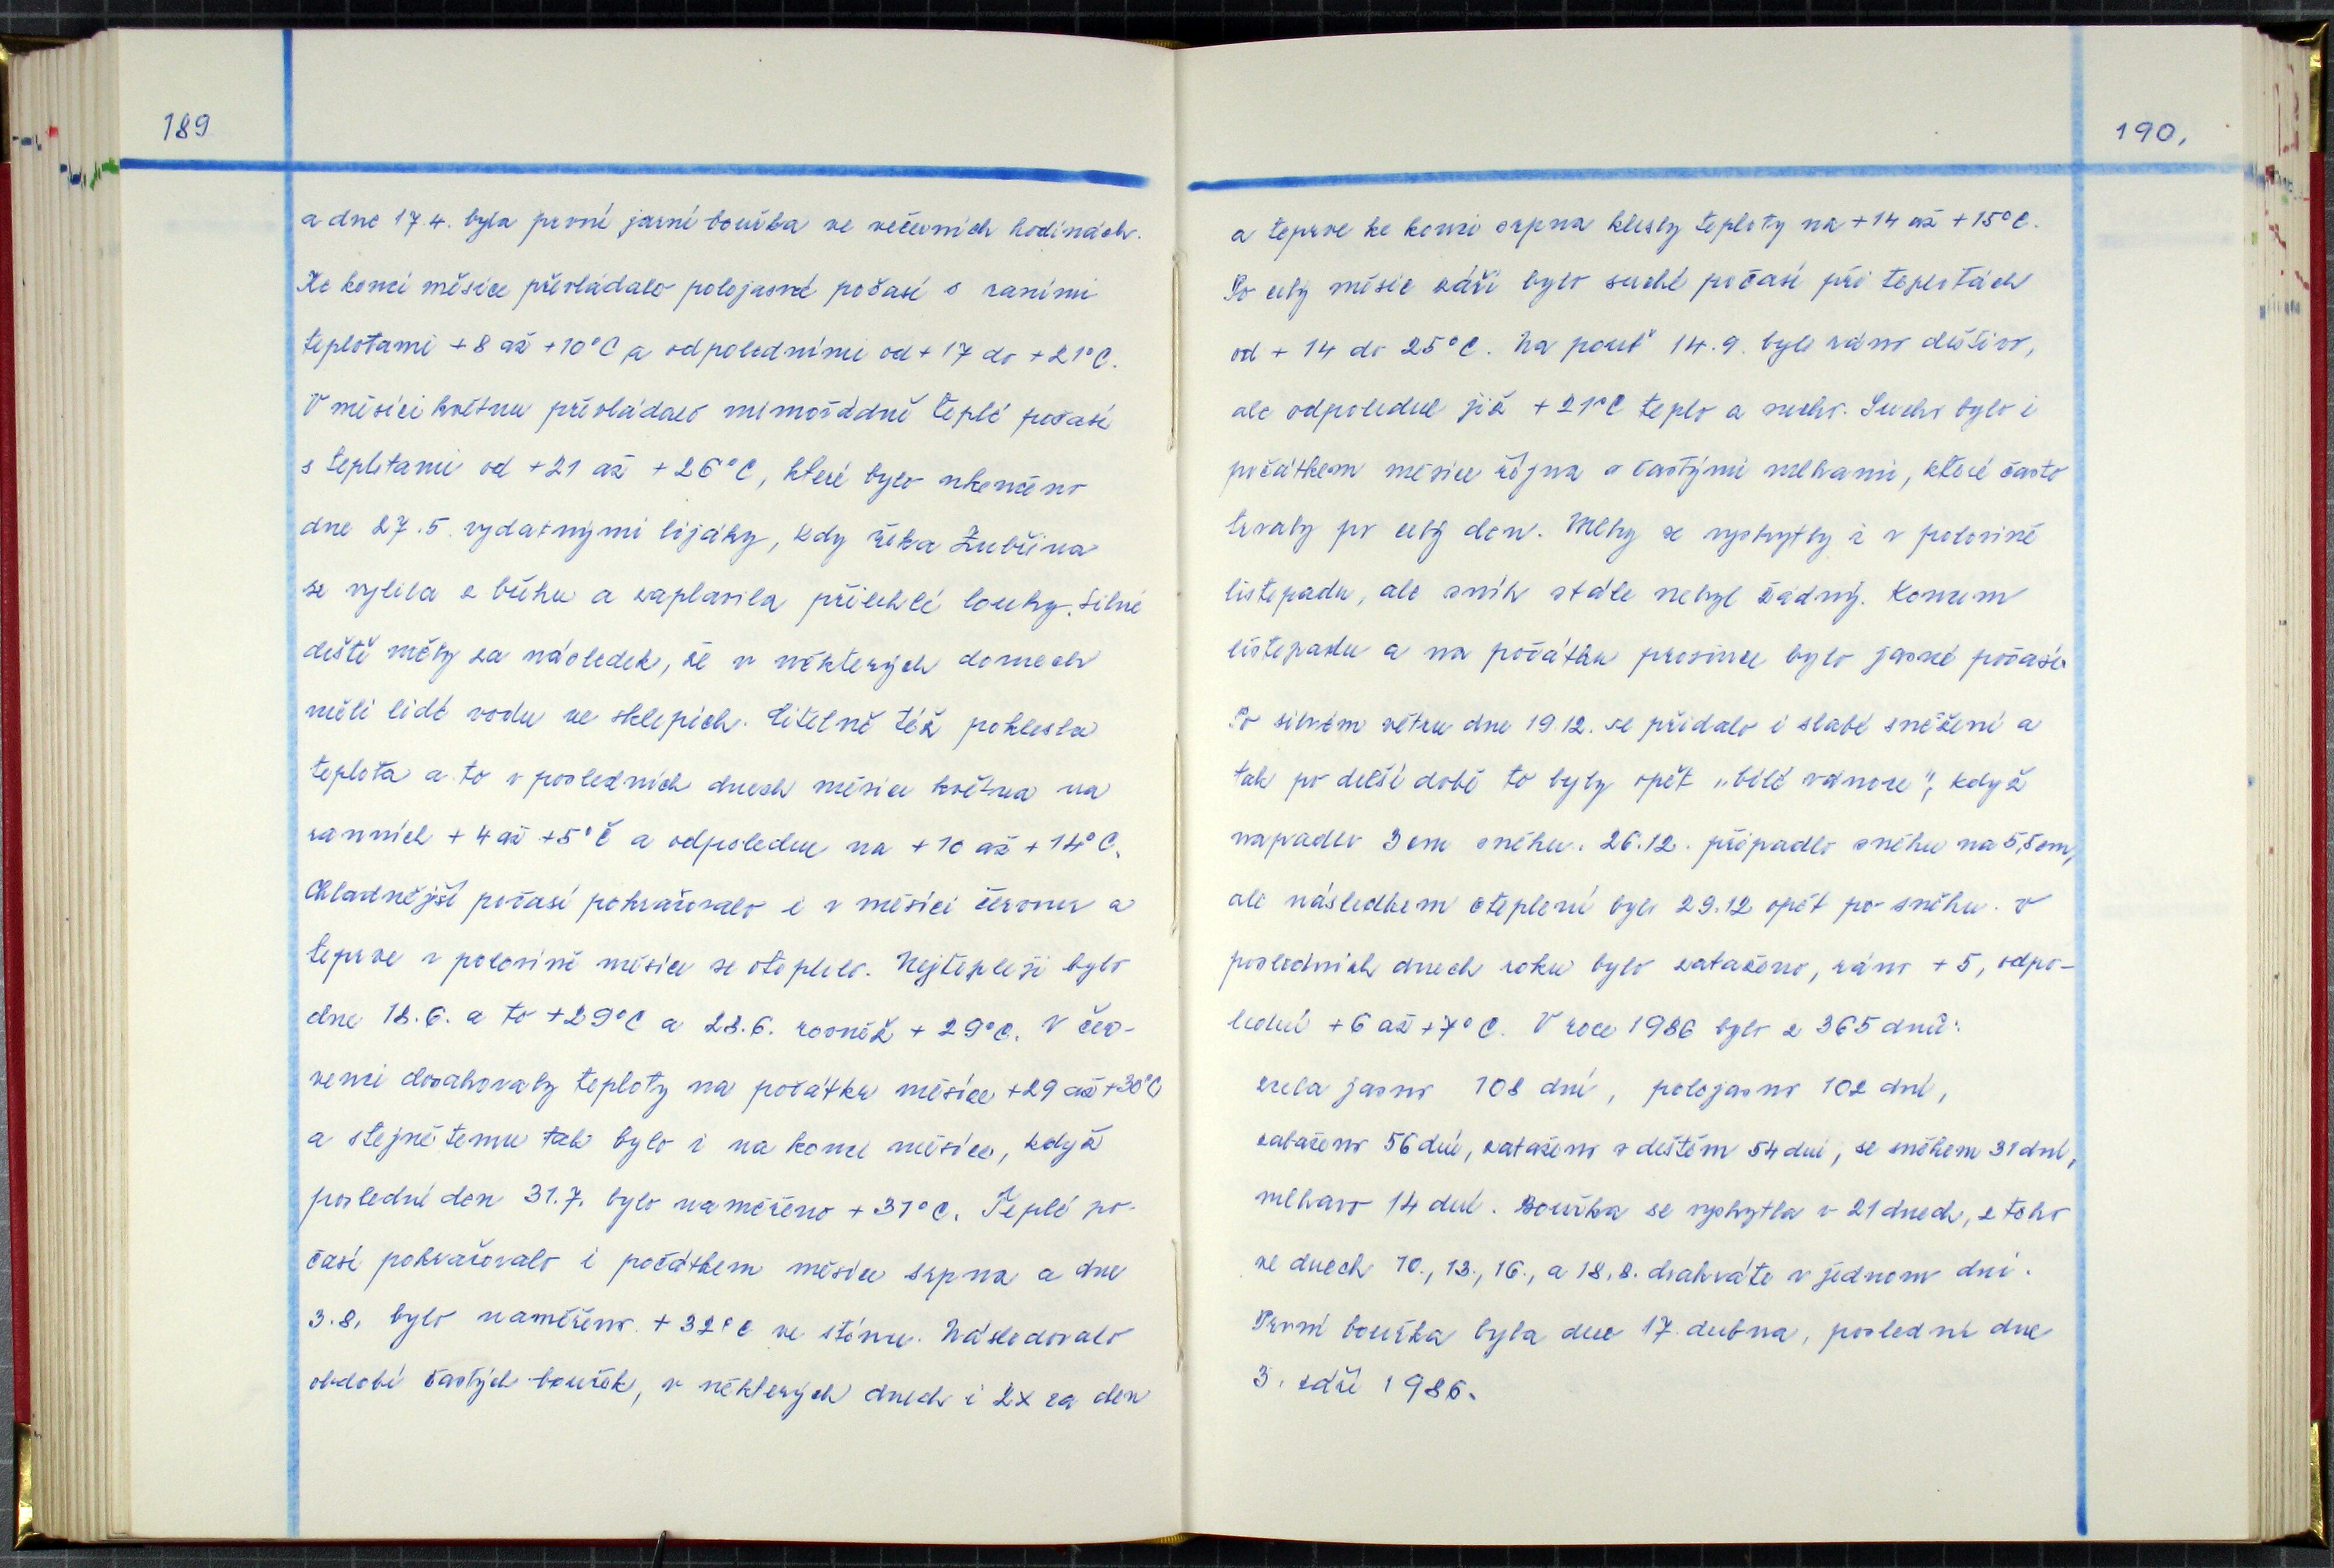 189
a dne 17.4. byla první jarní bouřka ve večerních hodinách.
Ke konci měsíce převládalo polojasné počasí s raními
teplotami +8 až +10°C a odpoledními od +17 do +21°C.
V měsíci květnu převládalo mimořádně teplé počasí
s teplotami od +21 až +26°C, které bylo ukončeno
dne 27.5. vydatnými lijáky, kdy řeka Zubřina
se vylila z břehu a zaplavila přilehlé louky. Silné
deště měly za následek, že v některých domech
měli lidé vodu ve sklepích. Citelně též poklesla
teplota a to v posledních dnech měsíce května na
ranních +4 až +5°C a odpoledne na +10 až +14°C.
Chladnější počasí pokračovalo i v měsíci červnu a
teprve v polovině měsíce se oteplilo. Nejtepleji bylo
dne 18.6. a to +29°C a 28.6. rovněž +29°C. V čer-
venci dosahovaly teploty na počátku měsíce +29 až +30°C
a stejně temu tak bylo i na konci měsíce, když
poslední den 31.7. bylo naměřeno +31°C. Teplé po-
časí pokračovalo i počátkem měsíce srpna a dne
3.8. bylo naměřeno +32°C ve stínu. Následovalo
období častých bouřek, v některých dnech i 2x za den
190.
a teprve ke konci srpna klesly teploty na +14 až +15°C.
Po celý měsíc září bylo suché počasí při teplotách
od +14 do 25°C. Na pouť 14.9. bylo ráno deštivo,
ale odpoledne již +21°C teplo a sucho. Sucho bylo i
počátkem měsíce října s častými mlhami, které často
trvaly po celý den. Mlhy se vyskytly i v polovině
listopadu, ale sníh stále nebyl žádný. Koncem
listopadu a na počátku prosince bylo jasné počasí.
Po silném větru dne 19.12. se přidalo i slabé sněžení a
tak po delší době to byly opět „bílé vánoce", když
napadlo 3 cm sněhu. 26.12. připadlo sněhu na 5,5 cm,
ale následkem oteplení bylo 29.12 opět po sněhu. V
posledních dnech roku bylo zataženo, ráno +5, odpo-
ledne +6 až +7°C. V roce 1986 bylo z 365 dnů:
zcela jasno 108 dní, polojasno 102 dní,
zataženo 56 dní, zataženo s deštěm 54 dní, se sněhem 31 dní,
mlhavo 14 dní. Bouřka se vyskytla v 21 dnech, z toho
ve dnech 10., 13., 16., a 18.8. dvakráte v jednom dni.
První bouřka byla dne 17. dubna, poslední dne
3. září 1986.